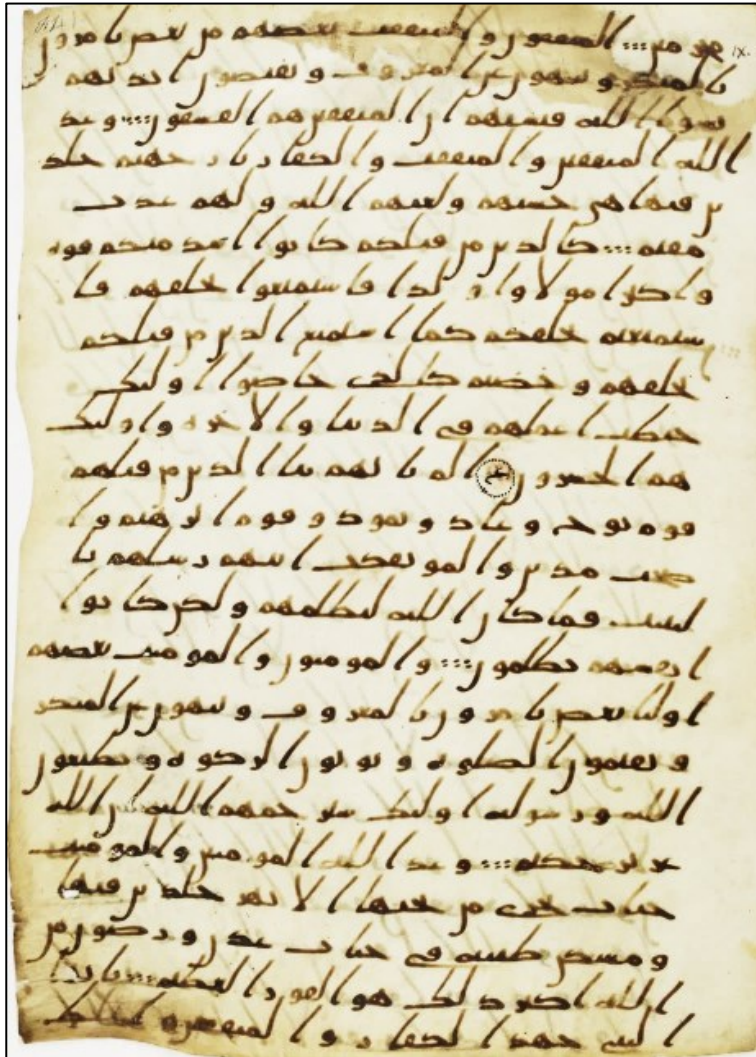 IX.
مجرمين المنفقون والمنفقت بعضهم من بعض يامرون
بالمنكر وينهون عن المعروف ويقبضون ايديهم
نسوا الله فنسيهم ان المنفقين هم الفسقون وعد
الله المنفقين والمنفقت والكفار نار جهنم خلد
ين فيها هي حسبهم ولعنهم الله ولهم عذب
مقيم كالذين من قبلكم كانوا اشد منكم قوه
واكثر امولا واولدا فاستمتعوا بخلقهم فا
ستمتعتم بخلقكم كما استمتع الذين من قبلكم
بخلقهم وخضتم كالذي خاضوا اوليك
حبطت اعملهم في الدنيا والاخره واوليك
هم الخسرون الم ياتهم نبا الذين من قبلهم
قوم نوح وعاد وثمود وقوم ابرهيم وا
صحب مدين والموتفكت اتتهم رسلهم با
لبينت فما كان الله ليظلمهم ولكن كانوا
انفسهم يظلمون والمومنون والمومنت بعضهم
اوليا بعض يامرون بالمعروف وينهون عن المنكر
ويقيمون الصلوه ويوتون الزكوه ويطيعون
الله ورسوله اوليك سيرحمهم الله ان الله
عزيز حكيم وعد الله المومنين والمومنت
جنات تجري من تحتها الانهر خلدين فيها
ومسكن طيبه في جنات عدن ورضون من
الله اكبر ذلك هو الفوز العظيم يايها
النبي جهد الكفار والمنفقين واغلظ